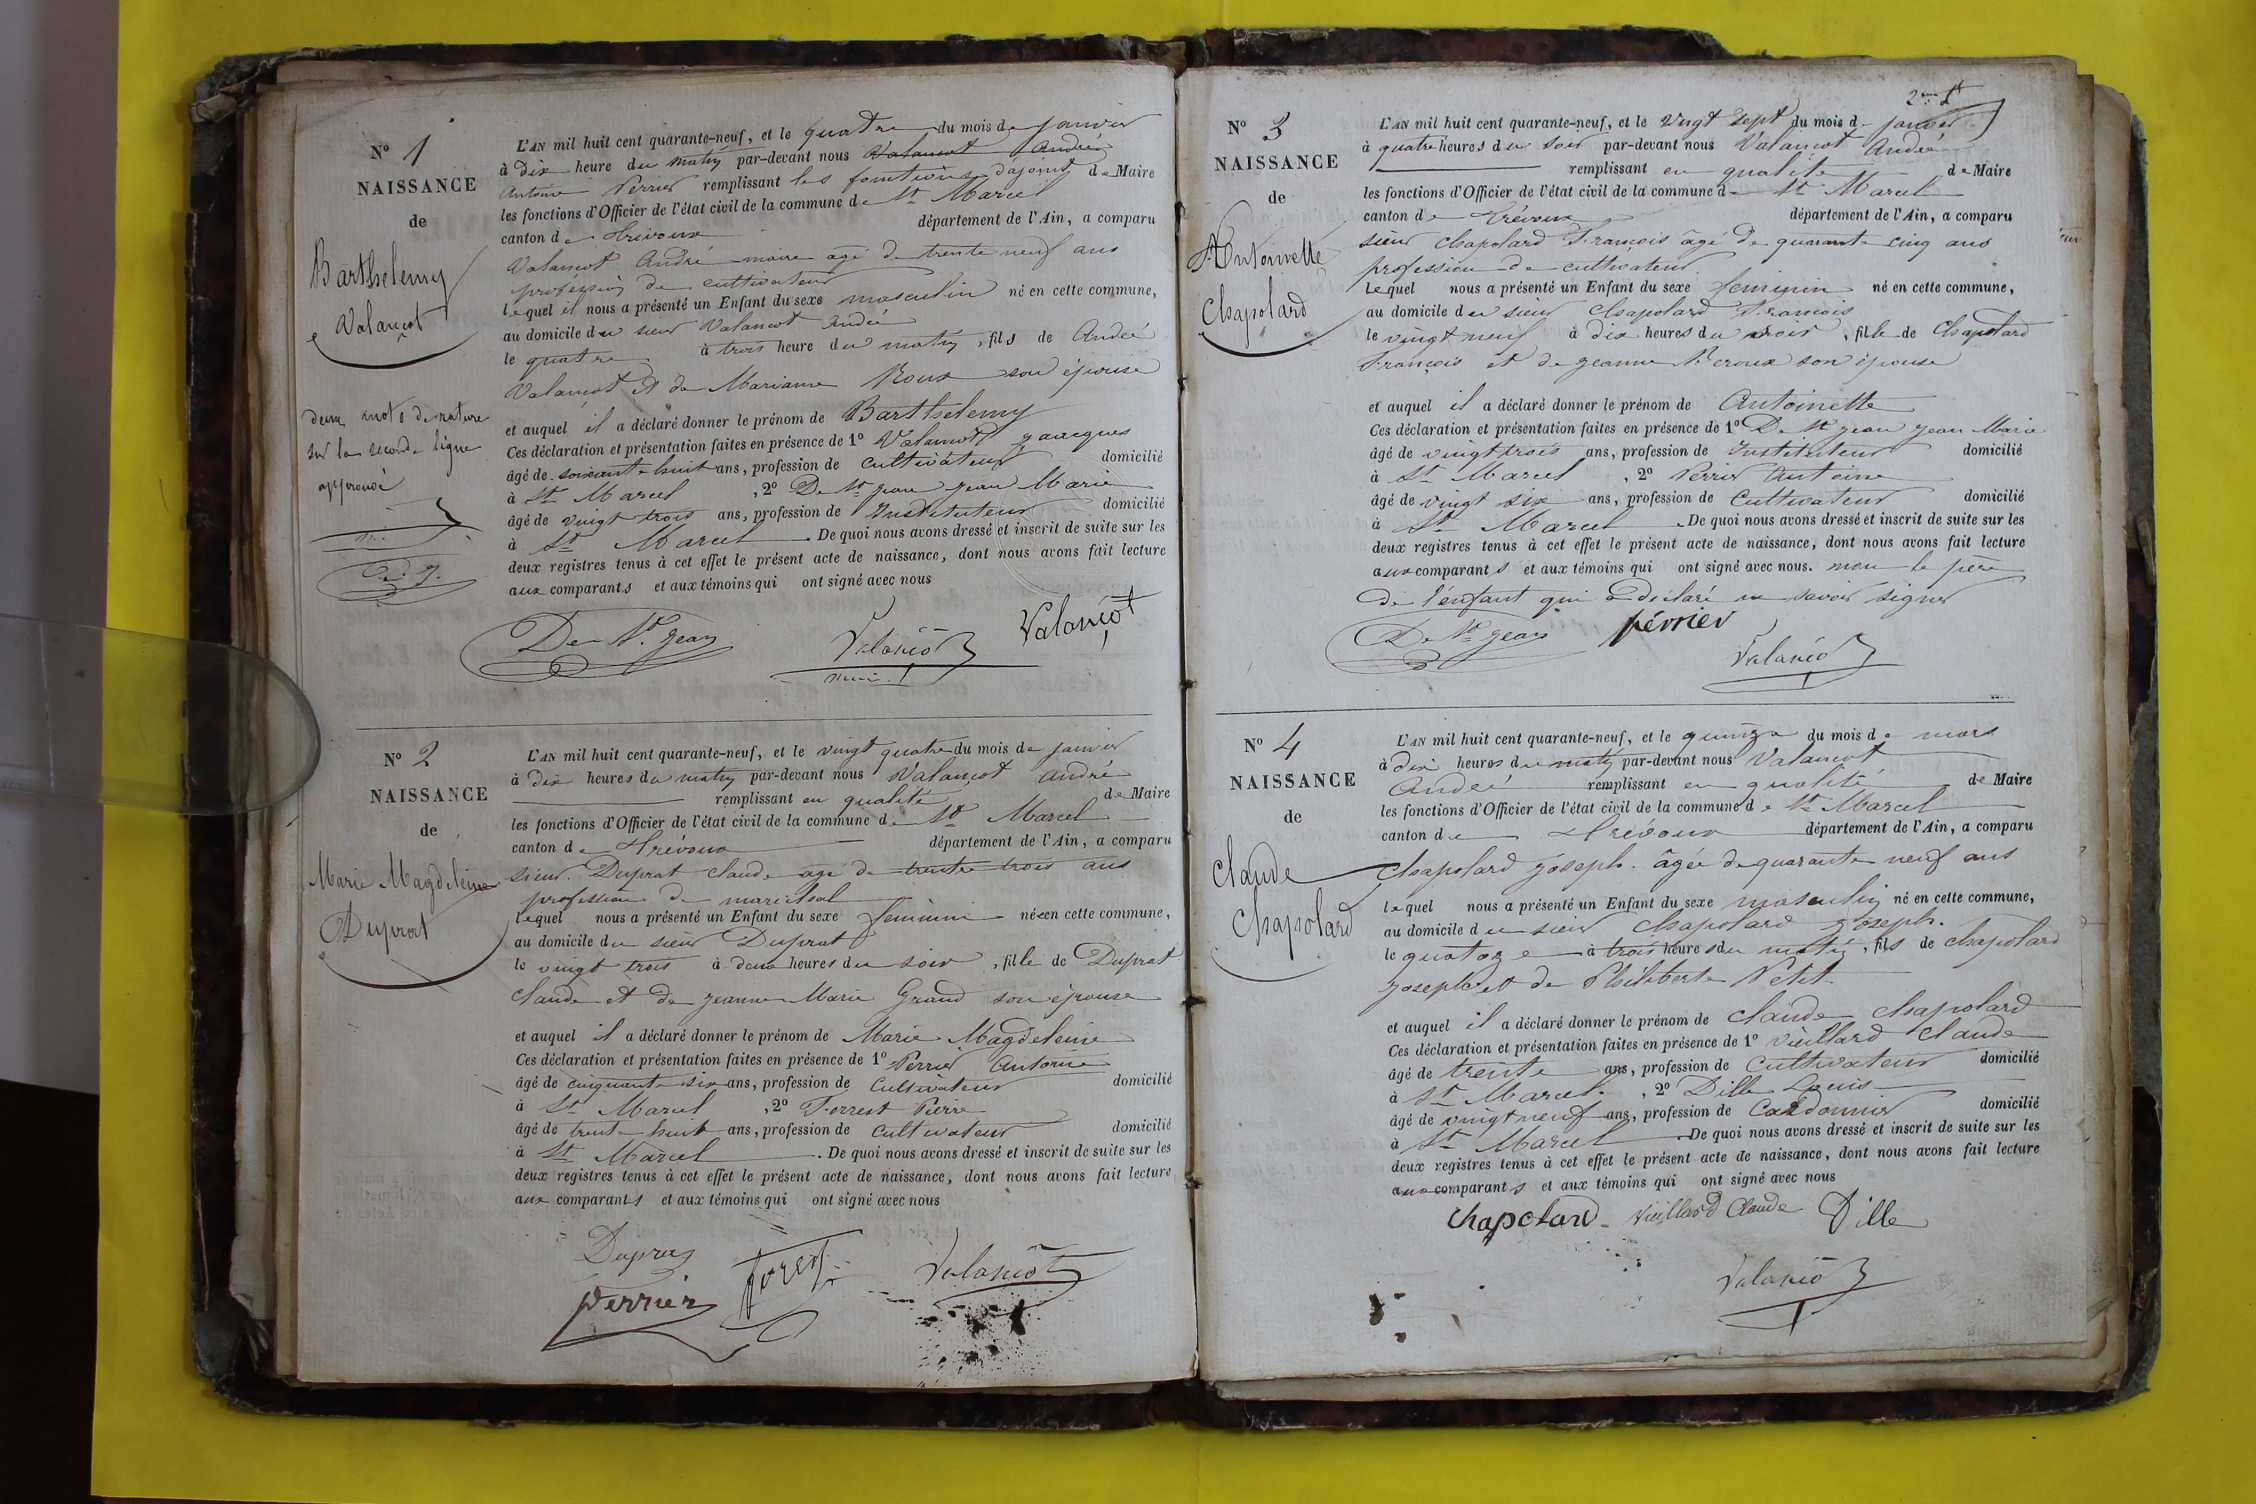 N° 1
NAISSANCE
de
Barthelemy
Valançot
deux mots de rature
sur la seconde ligne
approuvé
L'AN mil huit cent quarante-neuf, et le quatre du mois de janvier
à dix heure du matin par-devant nous Valancot André
Antoine Perrier remplissant les fonctions d'ajoint de Maire
les fonctions d'Officier de l'état civil de la commune de St Marcel
canton de Trévoux département de l'Ain, a comparu
Valancot André maire agé de trente neuf ans
profession de cultivateur
lequel il nous a présenté un Enfant du sexe masculin né en cette commune,
au domicile du sieur Valancot André
le quatre à trois heure du matin, fils de André
Valancot et de Mariane Roux son épouse
et auquel il a déclaré donner le prénom de Barthelemy
Ces déclaration et présentation faites en présence de 1° Valancot jaacques
âgé de soixante huit ans, profession de cultivateur domicilié
à St Marcel, 2° De St jean jean Marie
âgé de vingt trois ans, profession de Instituteur domicilié
à St Marcel. De quoi nous avons dressé et inscrit de suite sur les
deux registres tenus à cet effet le présent acte de naissance, dont nous avons fait lecture
aux comparants et aux témoins qui ont signé avec nous
De St. Jean Valancot Valancot
N° 2
NAISSANCE
de
Marie Magdeleine
Duprat
L'AN mil huit cent quarante-neuf, et le vingt quatre du mois de janvier
à dix heures du matin par-devant nous Valançot André
remplissant en qualité de Maire
les fonctions d'Officier de l'état civil de la commune de St Marcel
canton de Trévoux département de l'Ain, a comparu
sieur Duprat claude agé de trente trois ans
profession de maréchal
lequel nous a présenté un Enfant du sexe feminin née en cette commune,
au domicile du sieur Duprat
le vingt trois à deux heures du soir, fille de Duprat
claude et de jeanne Marie Grand son épouse
et auquel il a déclaré donner le prénom de Marie Magdeleine
Ces déclaration et présentation faites en présence de 1° Perrier Antoine
âgé de cinquante six ans, profession de Cultivateur domicilié
à St Marcel, 2° Forrest Pierre
âgé de trente huit ans, profession de cultivateur domicilié
à St Marcel. De quoi nous avons dressé et inscrit de suite sur les
deux registres tenus à cet effet le présent acte de naissance, dont nous avons fait lecture
aux comparants et aux témoins qui ont signé avec nous
Duprat
Perrier forest Valancot
N° 3
NAISSANCE
de
Antoinette
Chapolard
L'AN mil huit cent quarante-neuf, et le vingt sept du mois d janvier
à quatre heures du soir par-devant nous Valancot André
remplissant en qualité de Maire
les fonctions d'Officier de l'état civil de la commune de St Marcel
canton de Trévoux département de l'Ain, a comparu
sieur chapolard François âgé de quarante cinq ans
profession de cultivateur
lequel nous a présenté un Enfant du sexe feminin né en cette commune,
au domicile du sieur Chapolard François
le vingt neuf à dix heures du soir, fille de Chapolard
François et de jeanne Peroux son épouse
et auquel il a déclaré donner le prénom de Antoinette
Ces déclaration et présentation faites en présence de 1° De St jean jean Marie
âgé de vingt trois ans, profession de Instituteur domicilié
à St Marcel, 2° Perrier Antoine
âgé de vingt six ans, profession de Cultivateur domicilié
à St Marcel. De quoi nous avons dressé et inscrit de suite sur les
deux registres tenus à cet effet le présent acte de naissance, dont nous avons fait lecture
aux comparants et aux témoins qui ont signé avec nous. le père
de l'enfant qui a déclaré ne savoir signer
De St Jean Valancot
N° 4
NAISSANCE
de
Claude
Chapolard
L'AN mil huit cent quarante-neuf, et le quinze du mois de mars
à dix heures du matin par-devant nous Valancot
André remplissant en qualité de Maire
les fonctions d'Officier de l'état civil de la commune de St Marcel
canton de Trévoux département de l'Ain, a comparu
Chapolard joseph. âgée de quarante neuf ans
lequel nous a présenté un Enfant du sexe masculin né en cette commune,
au domicile du sieur Chapolard joseph.
le quatorze à trois heures du matin, fils de chapolard
joseph et de Philiberte Petit
et auquel il a déclaré donner le prénom de claude chapolard
Ces déclaration et présentation faites en présence de 1° vieillard Claude
âgé de trente ans, profession de Cultivateur domicilié
à St Marcel, 2° Dille Louis
âgé de vingt neuf ans, profession de Cordonnier domicilié
à St Marcel. De quoi nous avons dressé et inscrit de suite sur les
deux registres tenus à cet effet le présent acte de naissance, dont nous avons fait lecture
aux comparants et aux témoins qui ont signé avec nous
Chapolard vieillard Claude Dille
Valancot